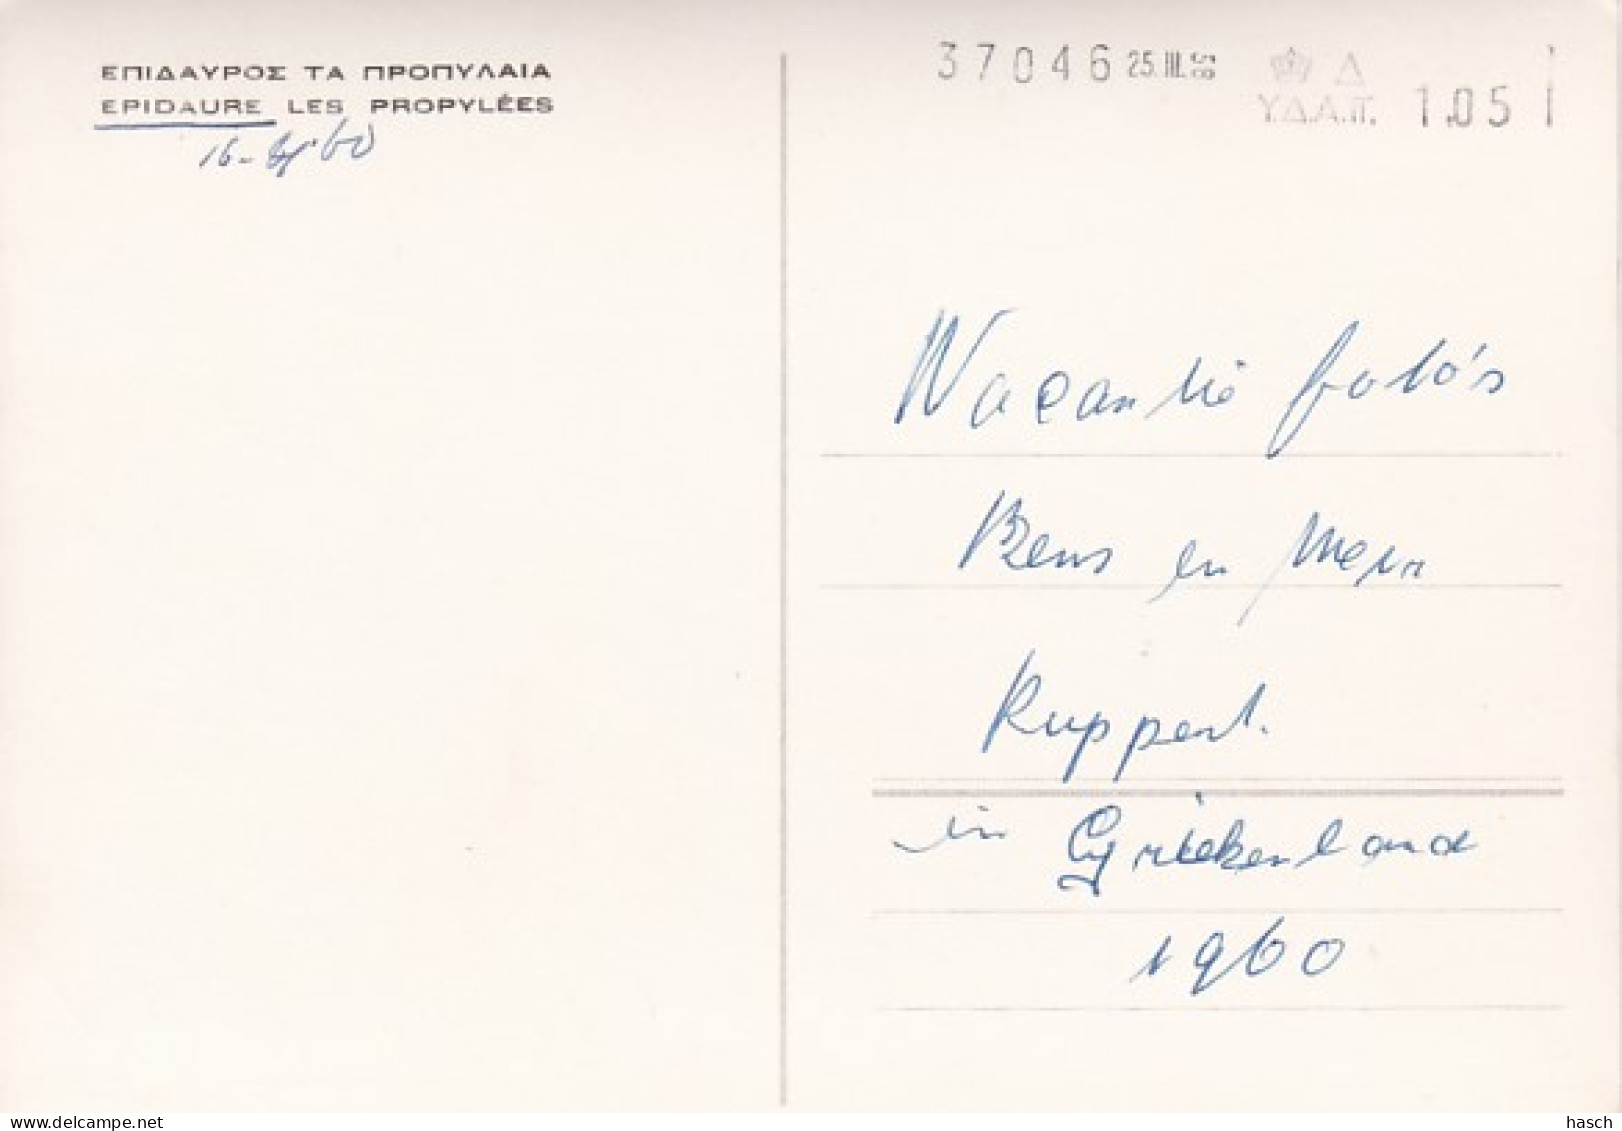 ΕΠΙΔΑΥΡΟΣ ΤΑ ΠΡΟΠΥΛΑΙΑ
EPIDAURE LES PROPYLÉES
37046 25.III.
Δ
Υ.Δ.Α.Π. 1.05
Vacantie foto's
en
Ruppert.
in Griekenland
1960
www.delcampe.net
hasch